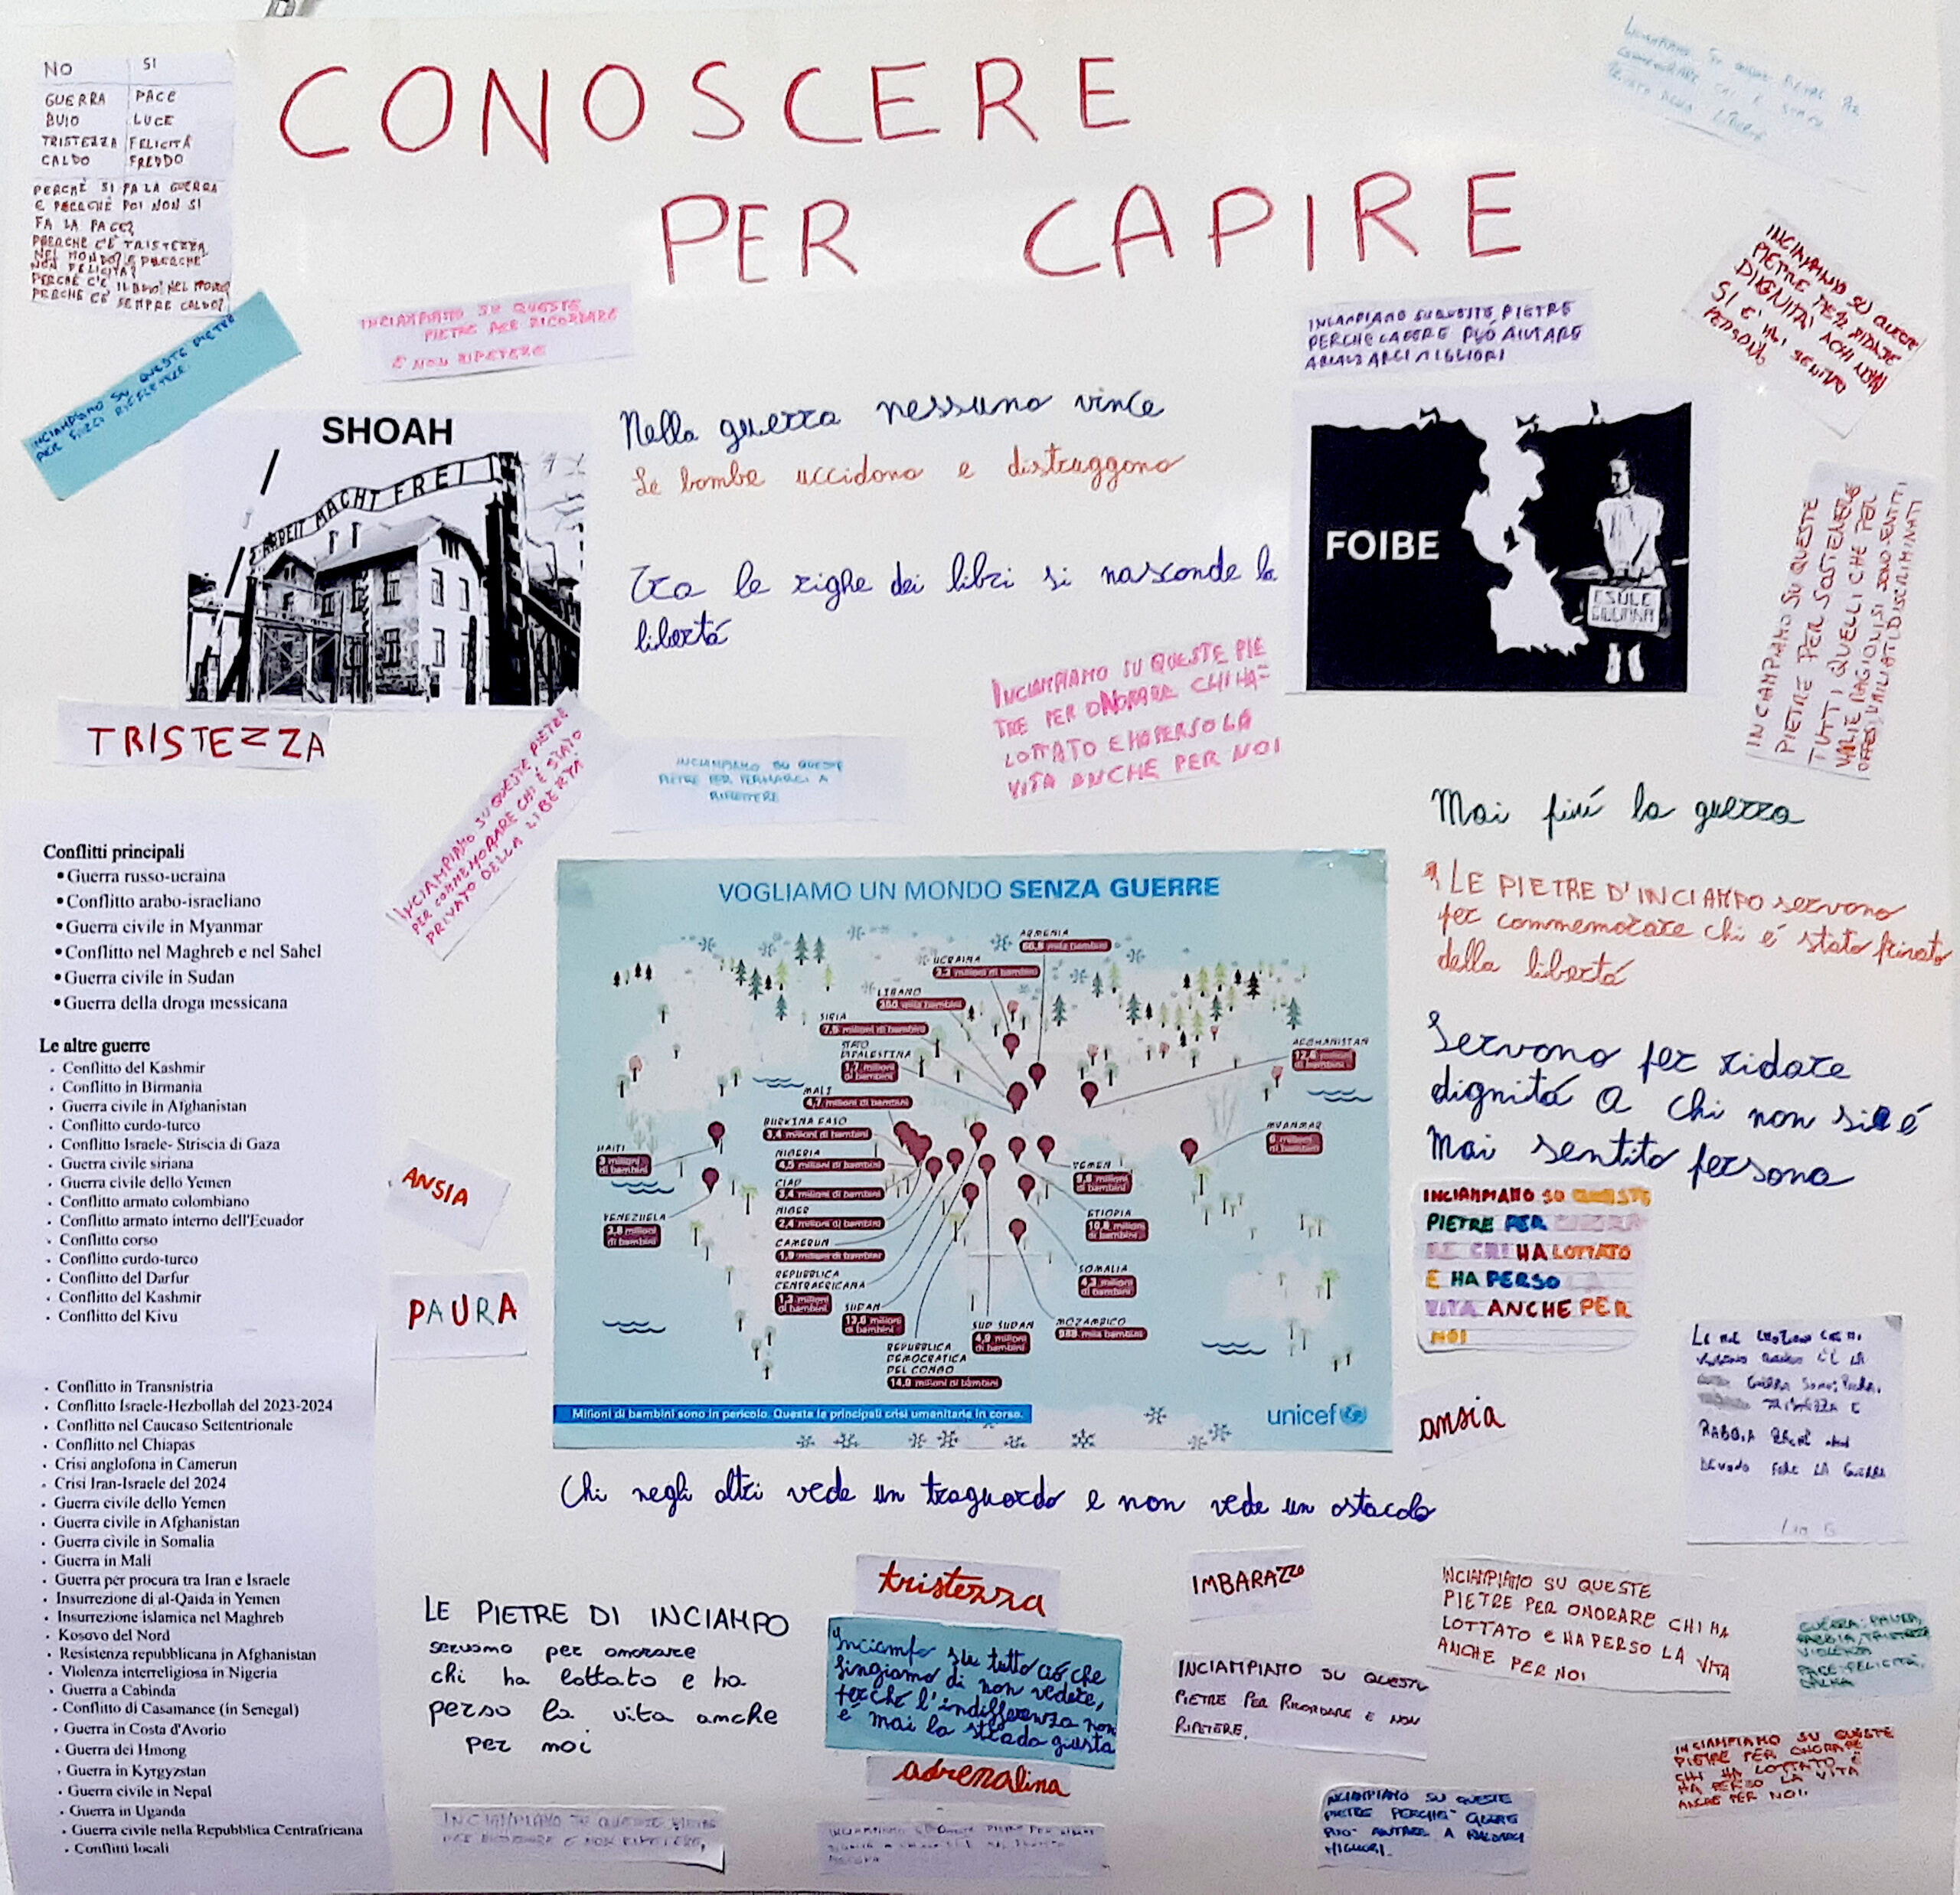 CONOSCERE
PER CAPIRE
NO SI
GUERRA PACE
BUIO LUCE
TRISTEZZA FELICITÁ
CALDO FREDDO
PERCHÈ SI FA LA GUERRA
E PERCHÈ POI NON SI
FA LA PACE?
PERCHE C'È TRISTEZZA
NEL MONDO? E PERCHE
NON FELICITA?
PERCHE C'E' IL BUIO NEL MONDO?
PERCHE C'E' SEMPRE CALDO?
INCIAMPIAMO SU QUESTE PIETRE
PER FARCI RIFLETTERE
INCIAMPIAMO SU QUESTE
PIETRE PER RICORDARE
E NON RIPETERE
INCIAMPIAMO SU QUESTE PIETRE
PERCHE CADERE PUÓ AIUTARE
A RIALZARCI MIGLIORI
INCIAMPIAMO SU QUESTE
PIETRE PER RIDARE
DIGNITÀ A CHI NON
SI E' MAI SENTITO
PERSONA
SHOAH
ARBEIT MACHT FREI
Nella guerra nessuno vince
Le bombe uccidono e distruggono
Tra le righe dei libri si nasconde la
libertá
FOIBE
ESULE
GIULIANA
INCIAMPIAMO SU QUESTE
PIETRE PER SOSTENERE
TUTTI QUELLI CHE PER
VARIE RAGIONI SI SONO SENTITI
OFFESI, UMILIATI, DISCRIMINATI
TRISTEZZA
INCIAMPIAMO SU QUESTE PIETRE
PER COMMEMORARE CHI É STATO
PRIVATO DELLA LIBERTÁ
INCIAMPIAMO SU QUESTE
PIETRE PER FERMARCI A
RIFLETTERE
INCIAMPIAMO SU QUESTE PIE
TRE PER ONORARE CHI HA=
LOTTATO E HA PERSO LA
VITA ANCHE PER NOI
Conflitti principali
• Guerra russo-ucraina
• Conflitto arabo-israeliano
• Guerra civile in Myanmar
• Conflitto nel Maghreb e nel Sahel
• Guerra civile in Sudan
• Guerra della droga messicana
Le altre guerre
• Conflitto del Kashmir
• Conflitto in Birmania
• Guerra civile in Afghanistan
• Conflitto curdo-turco
• Conflitto Israele- Striscia di Gaza
• Guerra civile siriana
• Guerra civile dello Yemen
• Conflitto armato colombiano
• Conflitto armato interno dell'Ecuador
• Conflitto corso
• Conflitto curdo-turco
• Conflitto del Darfur
• Conflitto del Kashmir
• Conflitto del Kivu
• Conflitto in Transnistria
• Conflitto Israele-Hezbollah del 2023-2024
• Conflitto nel Caucaso Settentrionale
• Conflitto nel Chiapas
• Crisi anglofona in Camerun
• Crisi Iran-Israele del 2024
• Guerra civile dello Yemen
• Guerra civile in Afghanistan
• Guerra civile in Somalia
• Guerra in Mali
• Guerra per procura tra Iran e Israele
• Insurrezione di al-Qaida in Yemen
• Insurrezione islamica nel Maghreb
• Kosovo del Nord
• Resistenza repubblicana in Afghanistan
• Violenza interreligiosa in Nigeria
• Guerra a Cabinda
• Conflitto di Casamance (in Senegal)
• Guerra in Costa d'Avorio
• Guerra dei Hmong
• Guerra in Kyrgyzstan
• Guerra civile in Nepal
• Guerra in Uganda
• Guerra civile nella Repubblica Centrafricana
• Conflitti locali
ANSIA
PAURA
VOGLIAMO UN MONDO SENZA GUERRE
ARMENIA
mila bambini
UCRAINA
milioni di bambini
LIBANO
mila bambini
SIRIA
7,5 milioni di bambini
STATO
DI PALESTINA
1,7 milioni
di bambini
MALI
4,7 milioni di bambini
BURKINA FASO
3,4 milioni di bambini
NIGERIA
4,5 milioni di bambini
CIAD
3,4 milioni di bambini
NIGER
2,4 milioni di bambini
CAMERUN
1,9 milioni di bambini
REPUBBLICA
CENTRAFRICANA
1,3 milioni
di bambini
SUDAN
milioni
di bambini
REPUBBLICA
DEMOCRATICA
DEL CONGO
14,9 milioni di bambini
SUD SUDAN
4,9 milioni
di bambini
MOZAMBICO
mila bambini
SOMALIA
4,3 milioni
di bambini
ETIOPIA
10,8 milioni
di bambini
YEMEN
9,8 milioni
di bambini
MYANMAR
6 milioni
di bambini
AFGHANISTAN
milioni
di bambini
HAITI
3 milioni
di bambini
VENEZUELA
3,8 milioni
di bambini
Milioni di bambini sono in pericolo. Queste le principali crisi umanitarie in corso.
unicef
Mai piú la guerra
LE PIETRE D'INCIAMPO servono
per commemorare chi é stato privato
della libertá
Servono per ridare
dignitá a chi non si é
mai sentito persona
INCIAMPIAMO SU QUESTE
PIETRE PER ONORA
RE CHI HA LOTTATO
E HA PERSO LA
VITA ANCHE PER
NOI
ansia
GUERRA
TRISTEZZA E
RABBIA
FARE LA GUERRA
Chi negli altri vede un traguardo e non vede un ostacolo
LE PIETRE DI INCIAMPO
servono per onorare
chi ha lottato e ha
perso la vita anche
per noi
tristezza
Inciampo su tutto ció che
fingiamo di non vedere,
perché l'indifferenza non
é mai la strada giusta
adrenalina
IMBARAZZO
INCIAMPIAMO SU QUESTE
PIETRE PER RICORDARE E NON
RIPETERE.
INCIAMPIAMO SU QUESTE
PIETRE PER ONORARE CHI HA
LOTTATO E HA PERSO LA VITA
ANCHE PER NOI
GUERRA: PAURA,
RABBIA, TRISTEZZA
VIOLENZA
PACE: FELICITÀ,
CALMA
INCIAMPIAMO SU QUESTE
PIETRE PER ONORARE
CHI HA LOTTATO E
HA PERSO LA VITA
ANCHE PER NOI.
INCIAMPIAMO SU QUESTE
PIETRE PERCHE' CADERE
PUO' AIUTARE A RIALZARCI
MIGLIORI.
INCIAMPIAMO SU QUESTE PIETRE
PER RICORDARE E NON RIPETERE,